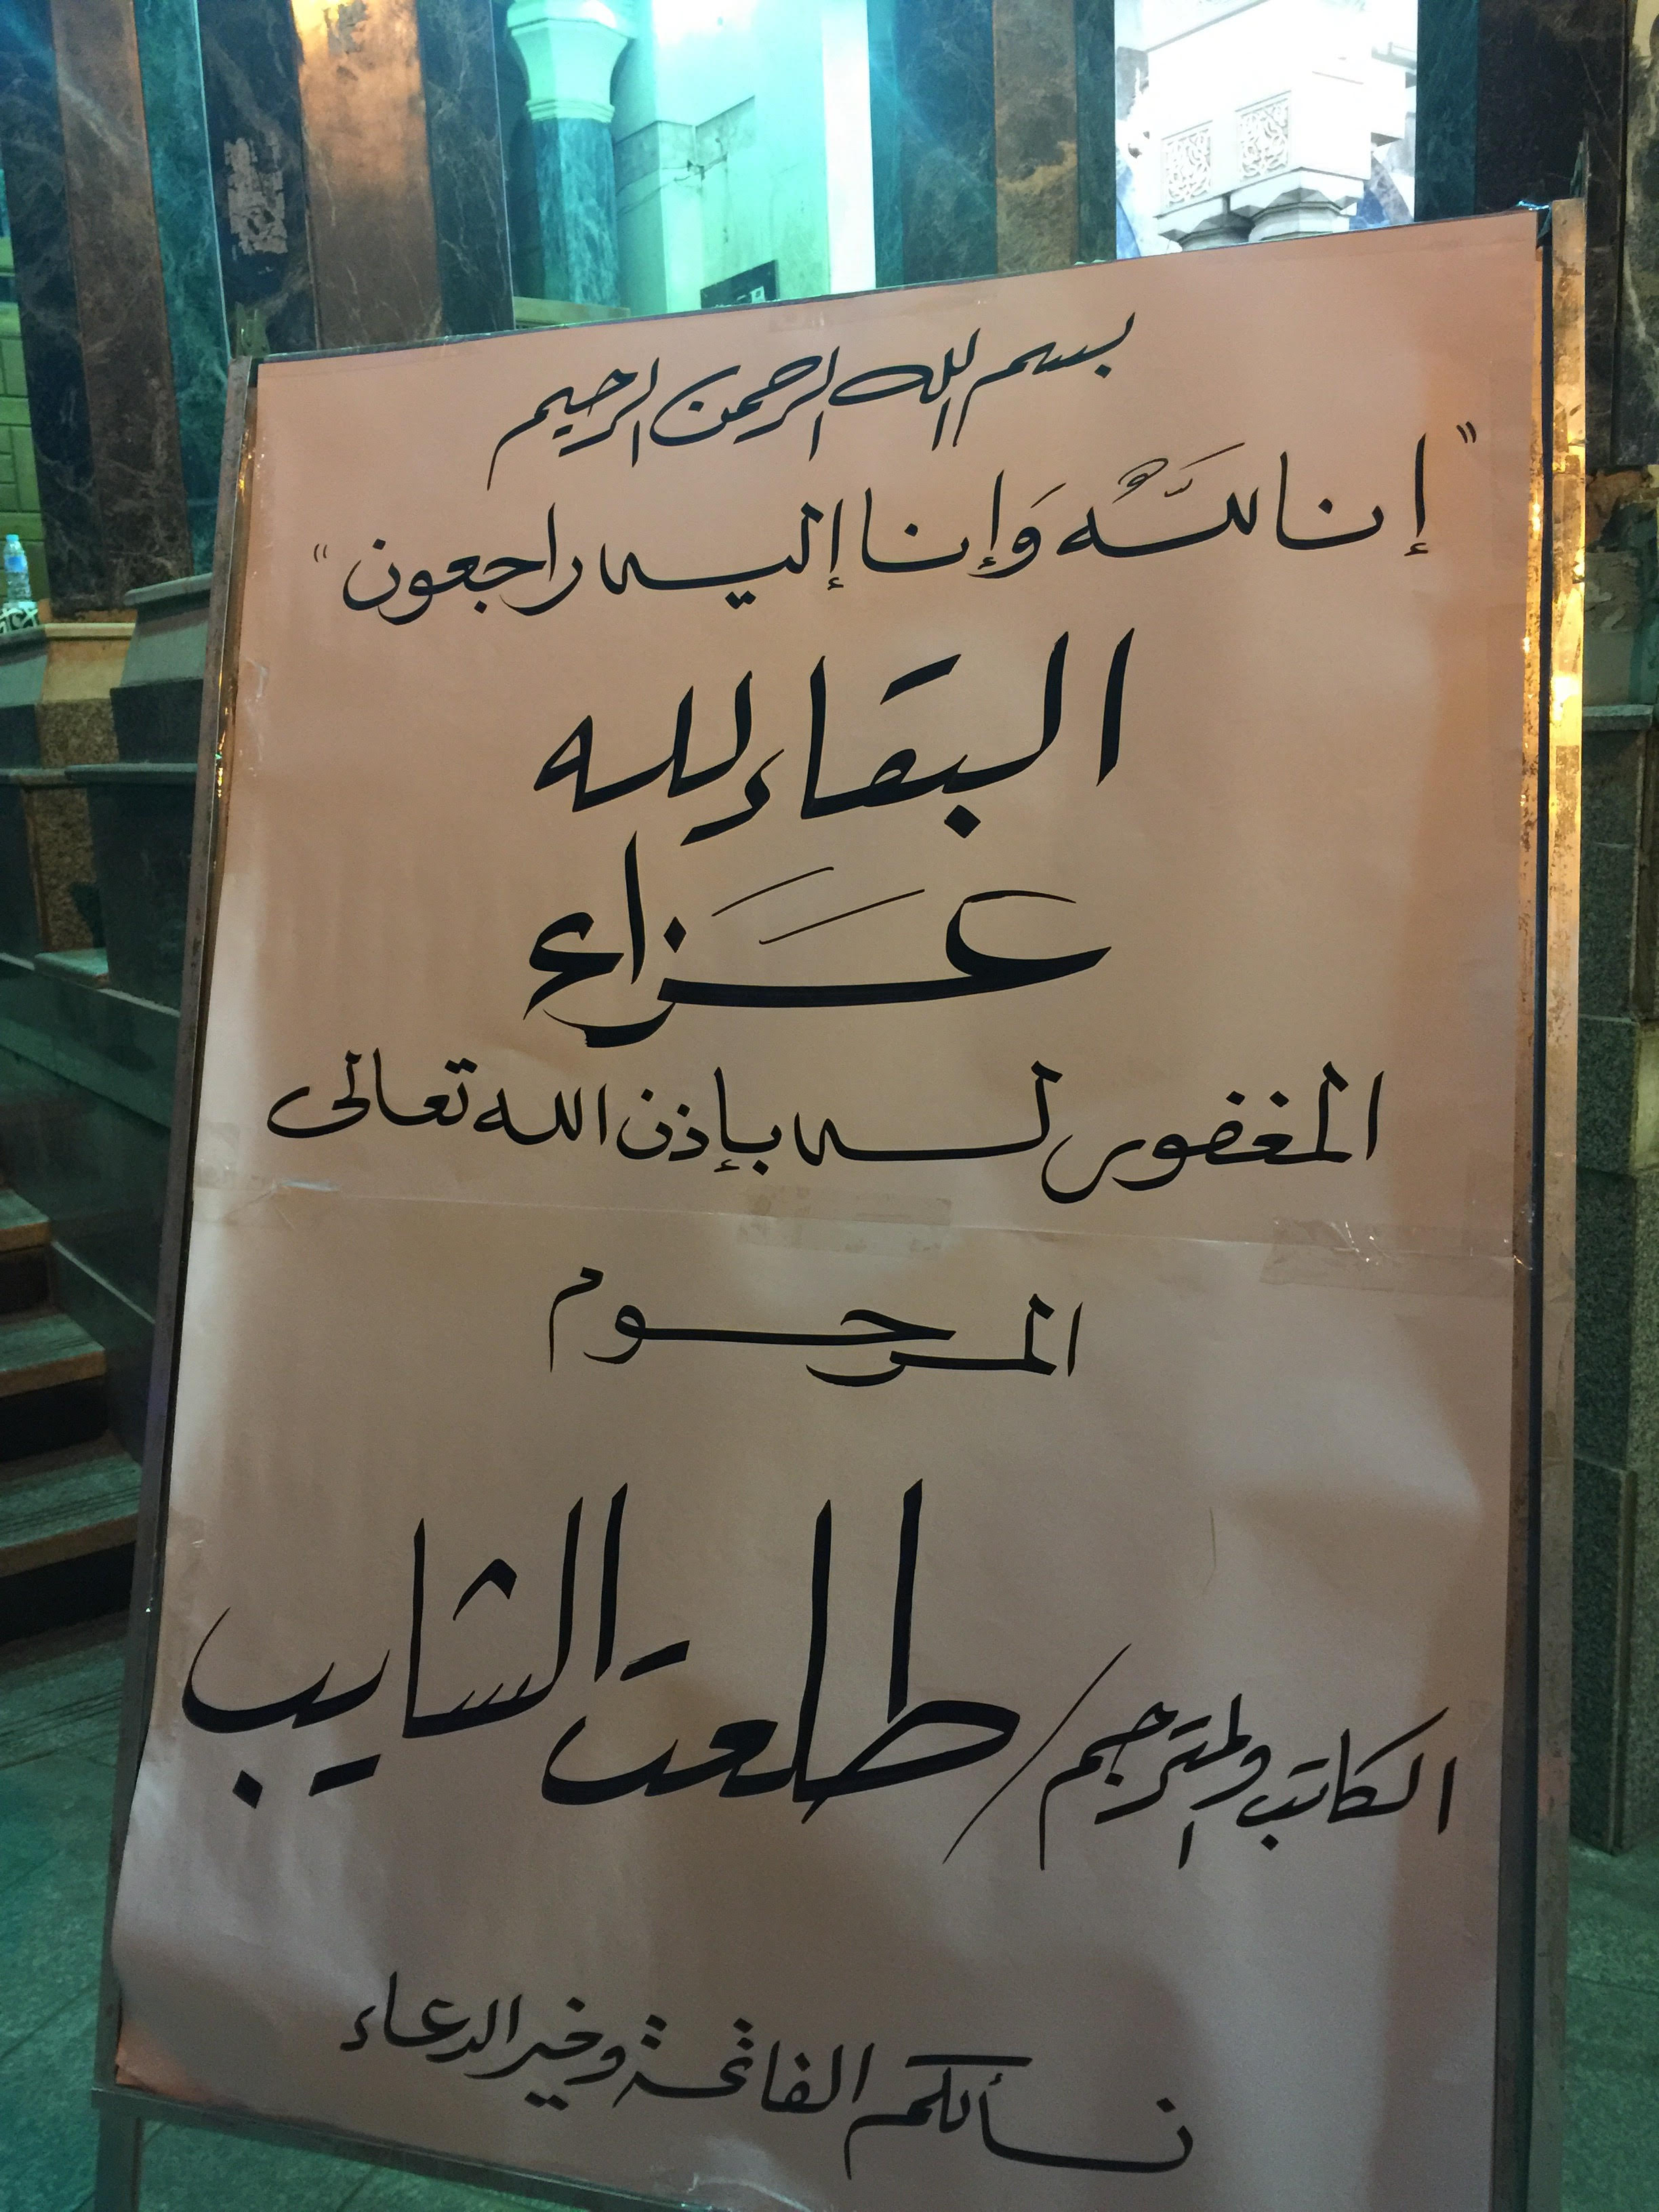 بسم الله الرحمن الرحيم
"إنا للَّهِ وَإنا إليه راجعون"
البقاء لله
عزاء
المغفور له بإذن الله تعالى
المرحوم
الكاتب والمترجم / طلعت الشايب
نسألكم الفاتحة وخير الدعاء